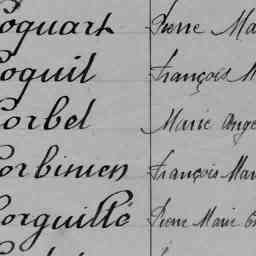 oquart Pierre Ma
oquil François M
orbel Marie Ange
orbinen François Mar
orguillé Pierre Marie